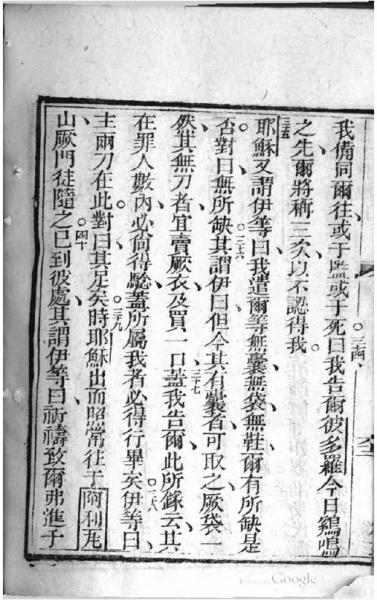 我備同爾往或于監或于死三四曰我告爾彼多羅今日鷄鳴
之先爾將稱三次以不認得我
三五耶穌又謂伊等曰我遣爾等無囊無袋無鞋爾有所缺是
否對曰無所缺三六其謂伊曰但今其有囊者可取之厥袋一
然其無刀者宜賣厥衣及買一口三七蓋我告爾此所錄云其
在罪人數內必尙得驗蓋所屬我者必得行畢矣三八伊等曰
主兩刀在此對曰其足矣三九時耶穌出而照常往于阿利瓦
山厥門徒隨之四十已到彼處其謂伊等曰祈禱致爾弗進于
Google